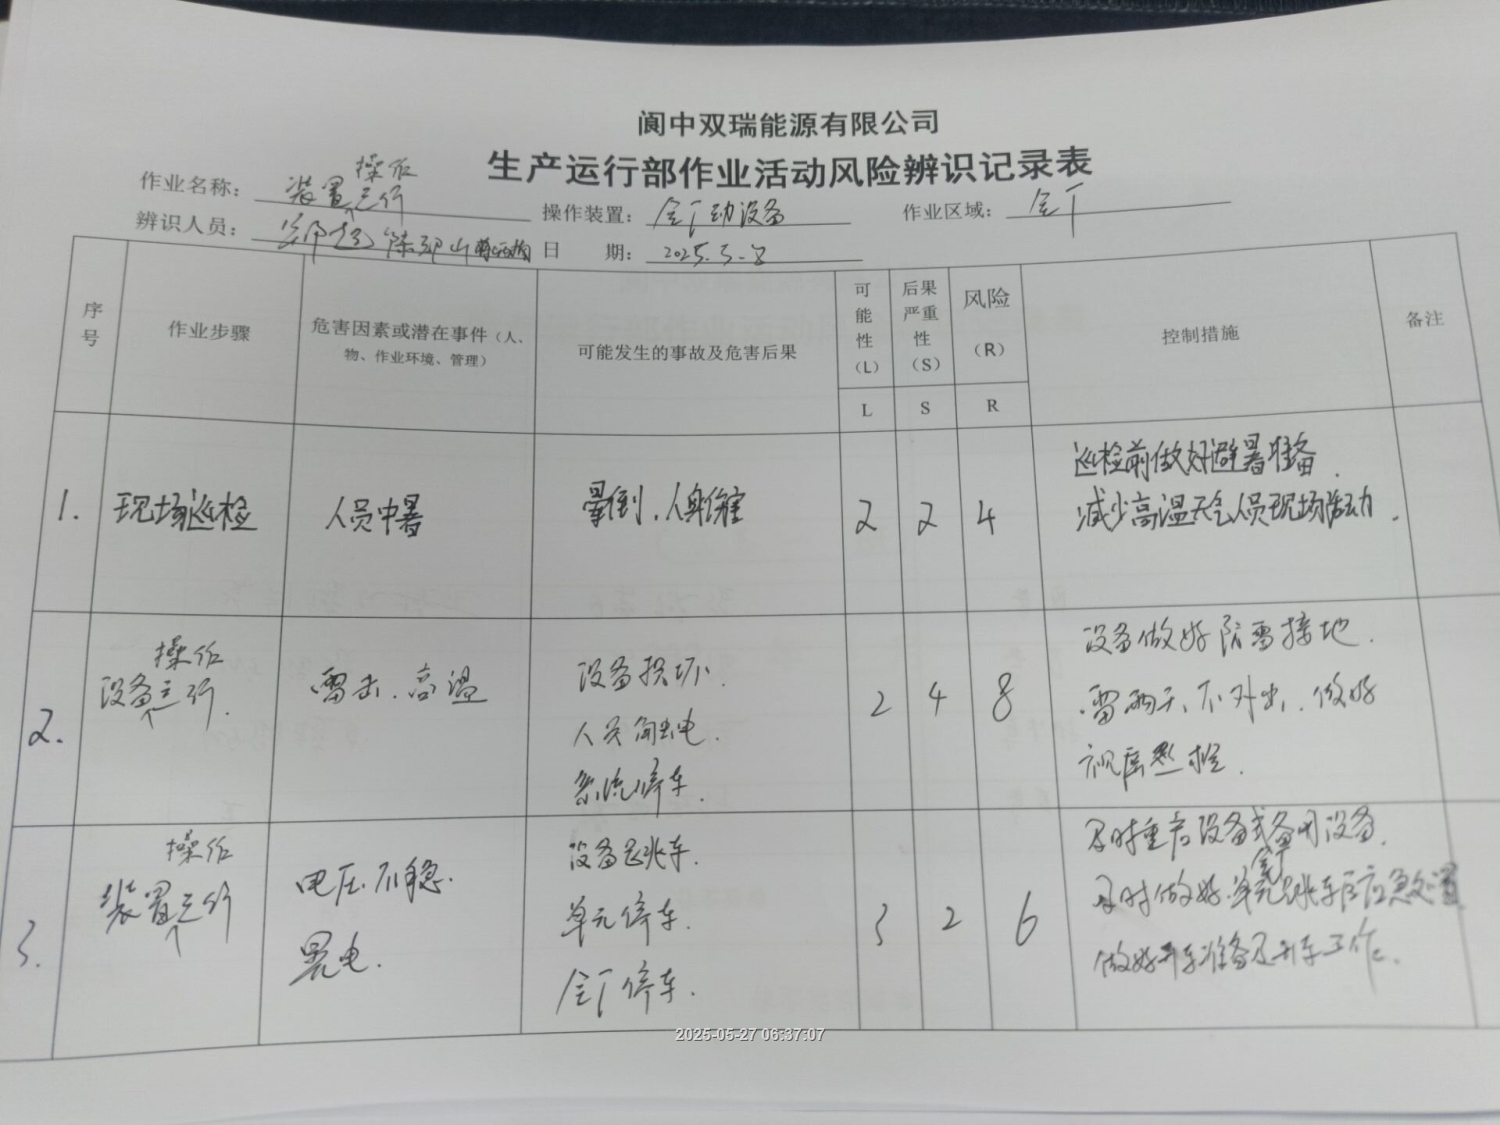 阆中双瑞能源有限公司
生产运行部作业活动风险辨识记录表
作业名称: 装置操作运行 操作装置: 全厂动设备 作业区域: 全厂
辨识人员: 日 期: 2025.5-8
序号 作业步骤 危害因素或潜在事件(人、物、作业环境、管理) 可能发生的事故及危害后果 可能性(L) 后果严重性(S) 风险(R) 控制措施 备注
L S R
1. 现场巡检 人员中暑 晕倒, 人身伤害 2 2 4
巡检前做好避暑准备.
减少高温天气人员现场活动.
2. 设备操作运行. 雷击、高温
设备损坏.
人员触电.
系统停车.
2 4 8
设备做好防雷接地.
雷雨天、不外出、做好
视屏巡检.
3. 装置操作运行
电压不稳.
晃电.
设备跳车.
单元停车.
全厂停车.
3 2 6
及时重启设备或备用设备.
及时做好单元跳车后应急处置
做好开车准备及开车工作.
2025-05-27 06:37:07